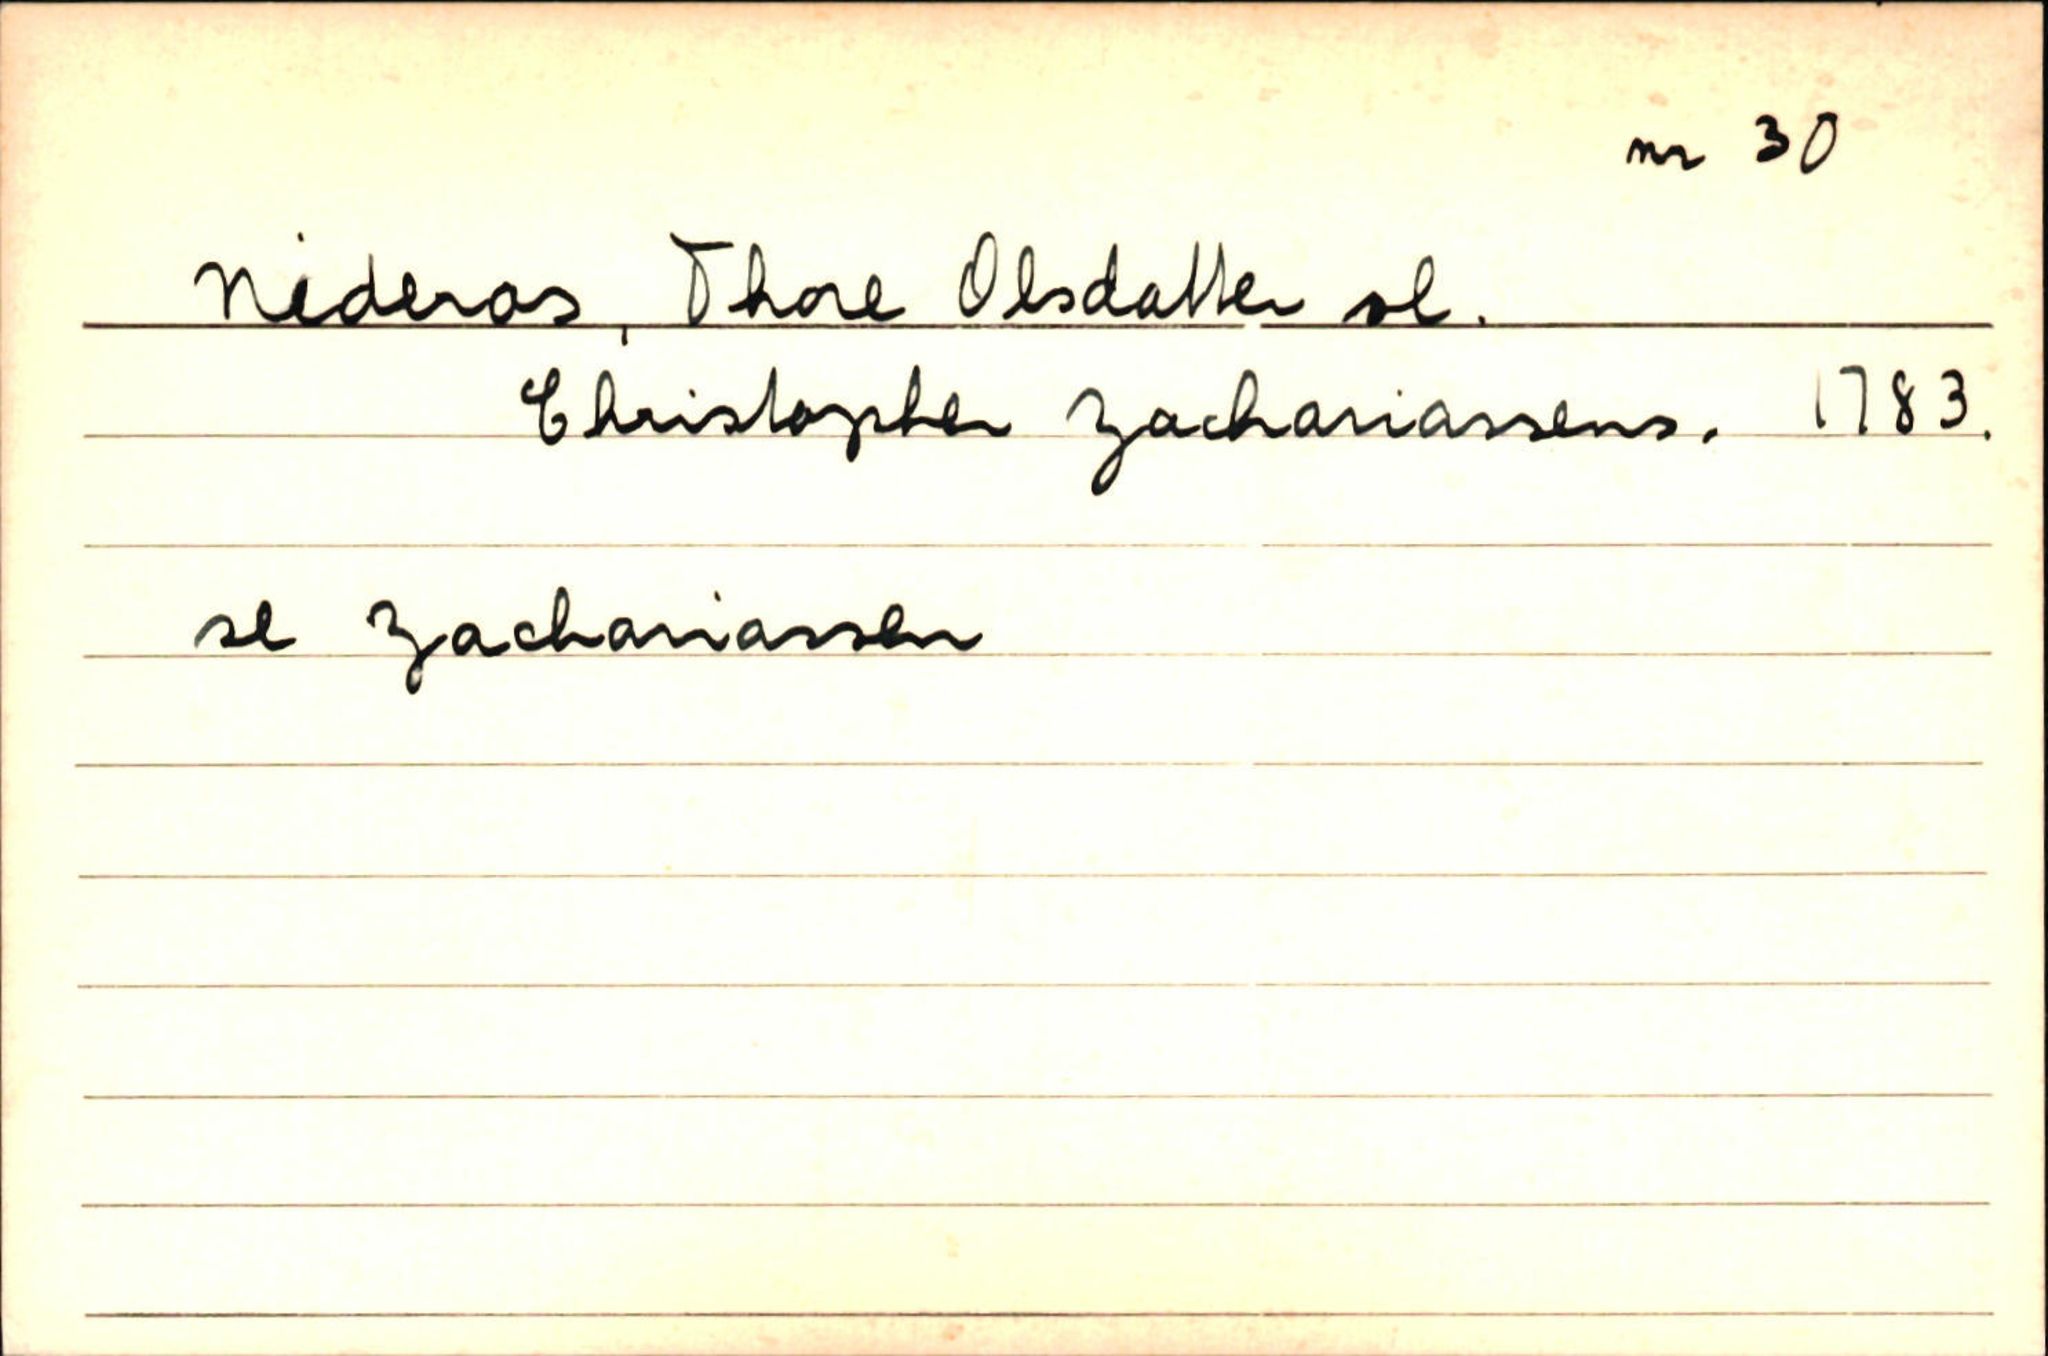 nr 30
Nideros, Thore Olsdatter sl.
Christopher Zachariassens. 1783.
se Zachariassen